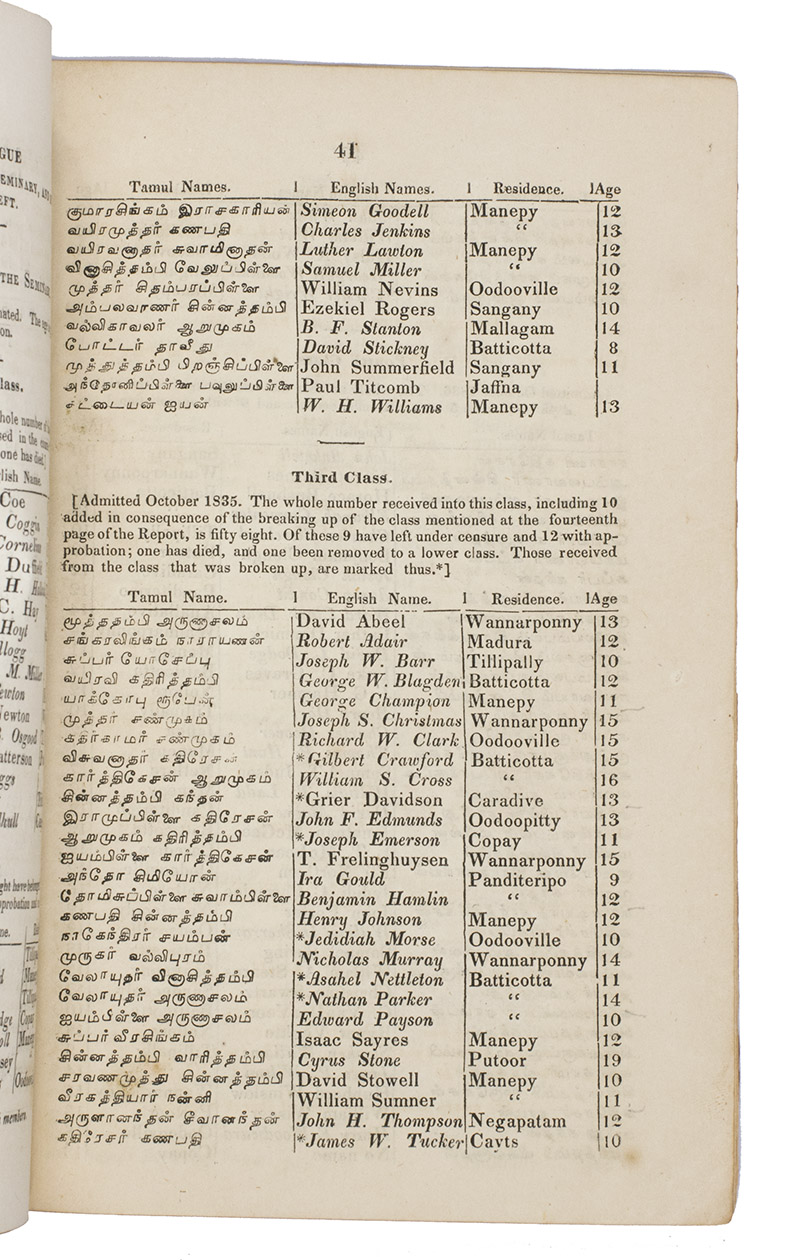 41
Tamul Names. | English Names. | Residence. | Age
குமாரசிங்கம் இராசகாரியன் Simeon Goodell Manepy 12
வயிரமுத்தர் கணபதி Charles Jenkins “ 13
வயிரவனுதர் சுவாமிறதன் Luther Lawton Manepy 12
வினாசித்தம்பி வேலுப்பிள்ளை Samuel Miller “ 10
முத்தர் சிதம்பரப்பிள்ளை William Nevins Oodooville 12
அம்பலவாணர் சின்னத்தம்பி Ezekiel Rogers Sangany 10
வல்லிகாவலர் ஆறுமுகம் B. F. Stanton Mallagam 14
போட்டர் தாவீது David Stickney Batticotta 8
முத்துத்தம்பி பிறஞ்சிப்பிள்ளை John Summerfield Sangany 11
அந்தோனிப்பிள்ளை பவுலுப்பிள்ளை Paul Titcomb Jaffna
சட்டையன் ஐயன் W. H. Williams Manepy 13
Third Class.
[Admitted October 1835. The whole number received into this class, including 10
added in consequence of the breaking up of the class mentioned at the fourteenth
page of the Report, is fifty eight. Of these 9 have left under censure and 12 with ap-
probation; one has died, and one been removed to a lower class. Those received
from the class that was broken up, are marked thus.*]
Tamul Name. | English Name. | Residence. | Age
மூத்ததம்பி அருணாசலம் David Abeel Wannarponny 13
சங்கரலிங்கம் நாராயணன் Robert Adair Madura 12
சுப்பர் யோசேப்பு Joseph W. Barr Tillipally 10
வயிரவி கதிரித்தம்பி George W. Blagden Batticotta 12
யாக்கோபு ரூபேன் George Champion Manepy 11
முத்தர் சண்முகம் Joseph S. Christmas Wannarponny 15
கதிர்காமர் சண்முகம் Richard W. Clark Oodooville 15
விசுவனாதர் கதிரேசன் *Gilbert Crawford Batticotta 15
கார்த்திகேசன் ஆறுமுகம் William S. Cross “ 16
சின்னத்தம்பி கந்தன் *Grier Davidson Caradive 13
இராமுப்பிள்ளை கதிரேசன் John F. Edmunds Oodoopitty 13
ஆறுமுகம் கதிரித்தம்பி *Joseph Emerson Copay 11
ஐயம்பிள்ளை கார்த்திகேசன் T. Frelinghuysen Wannarponny 15
அந்தோ சிமியோன் Ira Gould Panditeripo 9
தோமிசுப்பிள்ளை சுவாம்பிள்ளை Benjamin Hamlin “ 12
கணபதி சின்னத்தம்பி Henry Johnson Manepy 12
நாகேந்திரர் சயம்பன் *Jedidiah Morse Oodooville 10
முருகர் வல்லிபுரம் Nicholas Murray Wannarponny 14
வேலாயுதர் வினாசித்தம்பி *Asahel Nettleton Batticotta 11
வேலாயுதர் அருணாசலம் *Nathan Parker “ 14
ஐயம்பிள்ளை அருணாசலம் Edward Payson “ 10
சுப்பர் வீரசிங்கம் Isaac Sayres Manepy 12
சின்னத்தம்பி வாரித்தம்பி Cyrus Stone Putoor 19
சரவணமுத்து சின்னத்தம்பி David Stowell Manepy 10
வீரகத்தியார் நன்னி William Sumner “ 11
அருளானந்தன் சீவானந்தன் John H. Thompson Negapatam 12
கதிரேசர் கணபதி *James W. Tucker Cayts 10